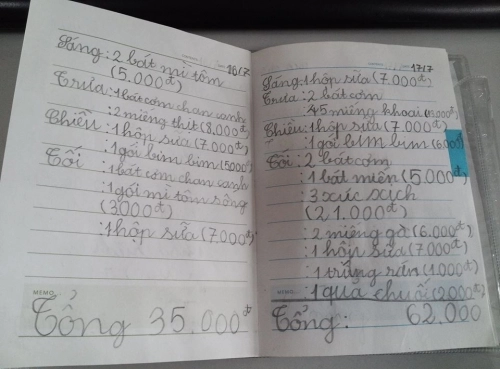 16/7
Sáng: 2 bát mì tôm
(5.000đ)
Trưa: 1 bát cơm chan canh
: 2 miếng thịt (8.000đ)
Chiều: 1 hộp sữa (7.000đ)
: 1 gói bim bim (5000đ)
Tối : 1 bát cơm chan canh
: 1 gói mì tôm sống
(3000đ)
: 1 hộp sữa (7.000đ)
MEMO
Tổng 35.000đ
17/7
Sáng: 1 hộp sữa (7.000đ)
Trưa: 2 bát cơm
: 45 miếng khoai (15.000đ)
Chiều: 1 hộp sữa (7.000đ)
: 1 gói bim bim (6.000đ)
Tối: 2 bát cơm
: 1 bát miến (5.000đ)
: 3 xúc xịch
(21.000đ)
: 2 miếng gà (6.000đ)
: 1 hộp sữa (7.000đ)
: 1 trứng rán (1.000đ)
MEMO : 1 quả chuối (2000đ)
Tổng: 62.000